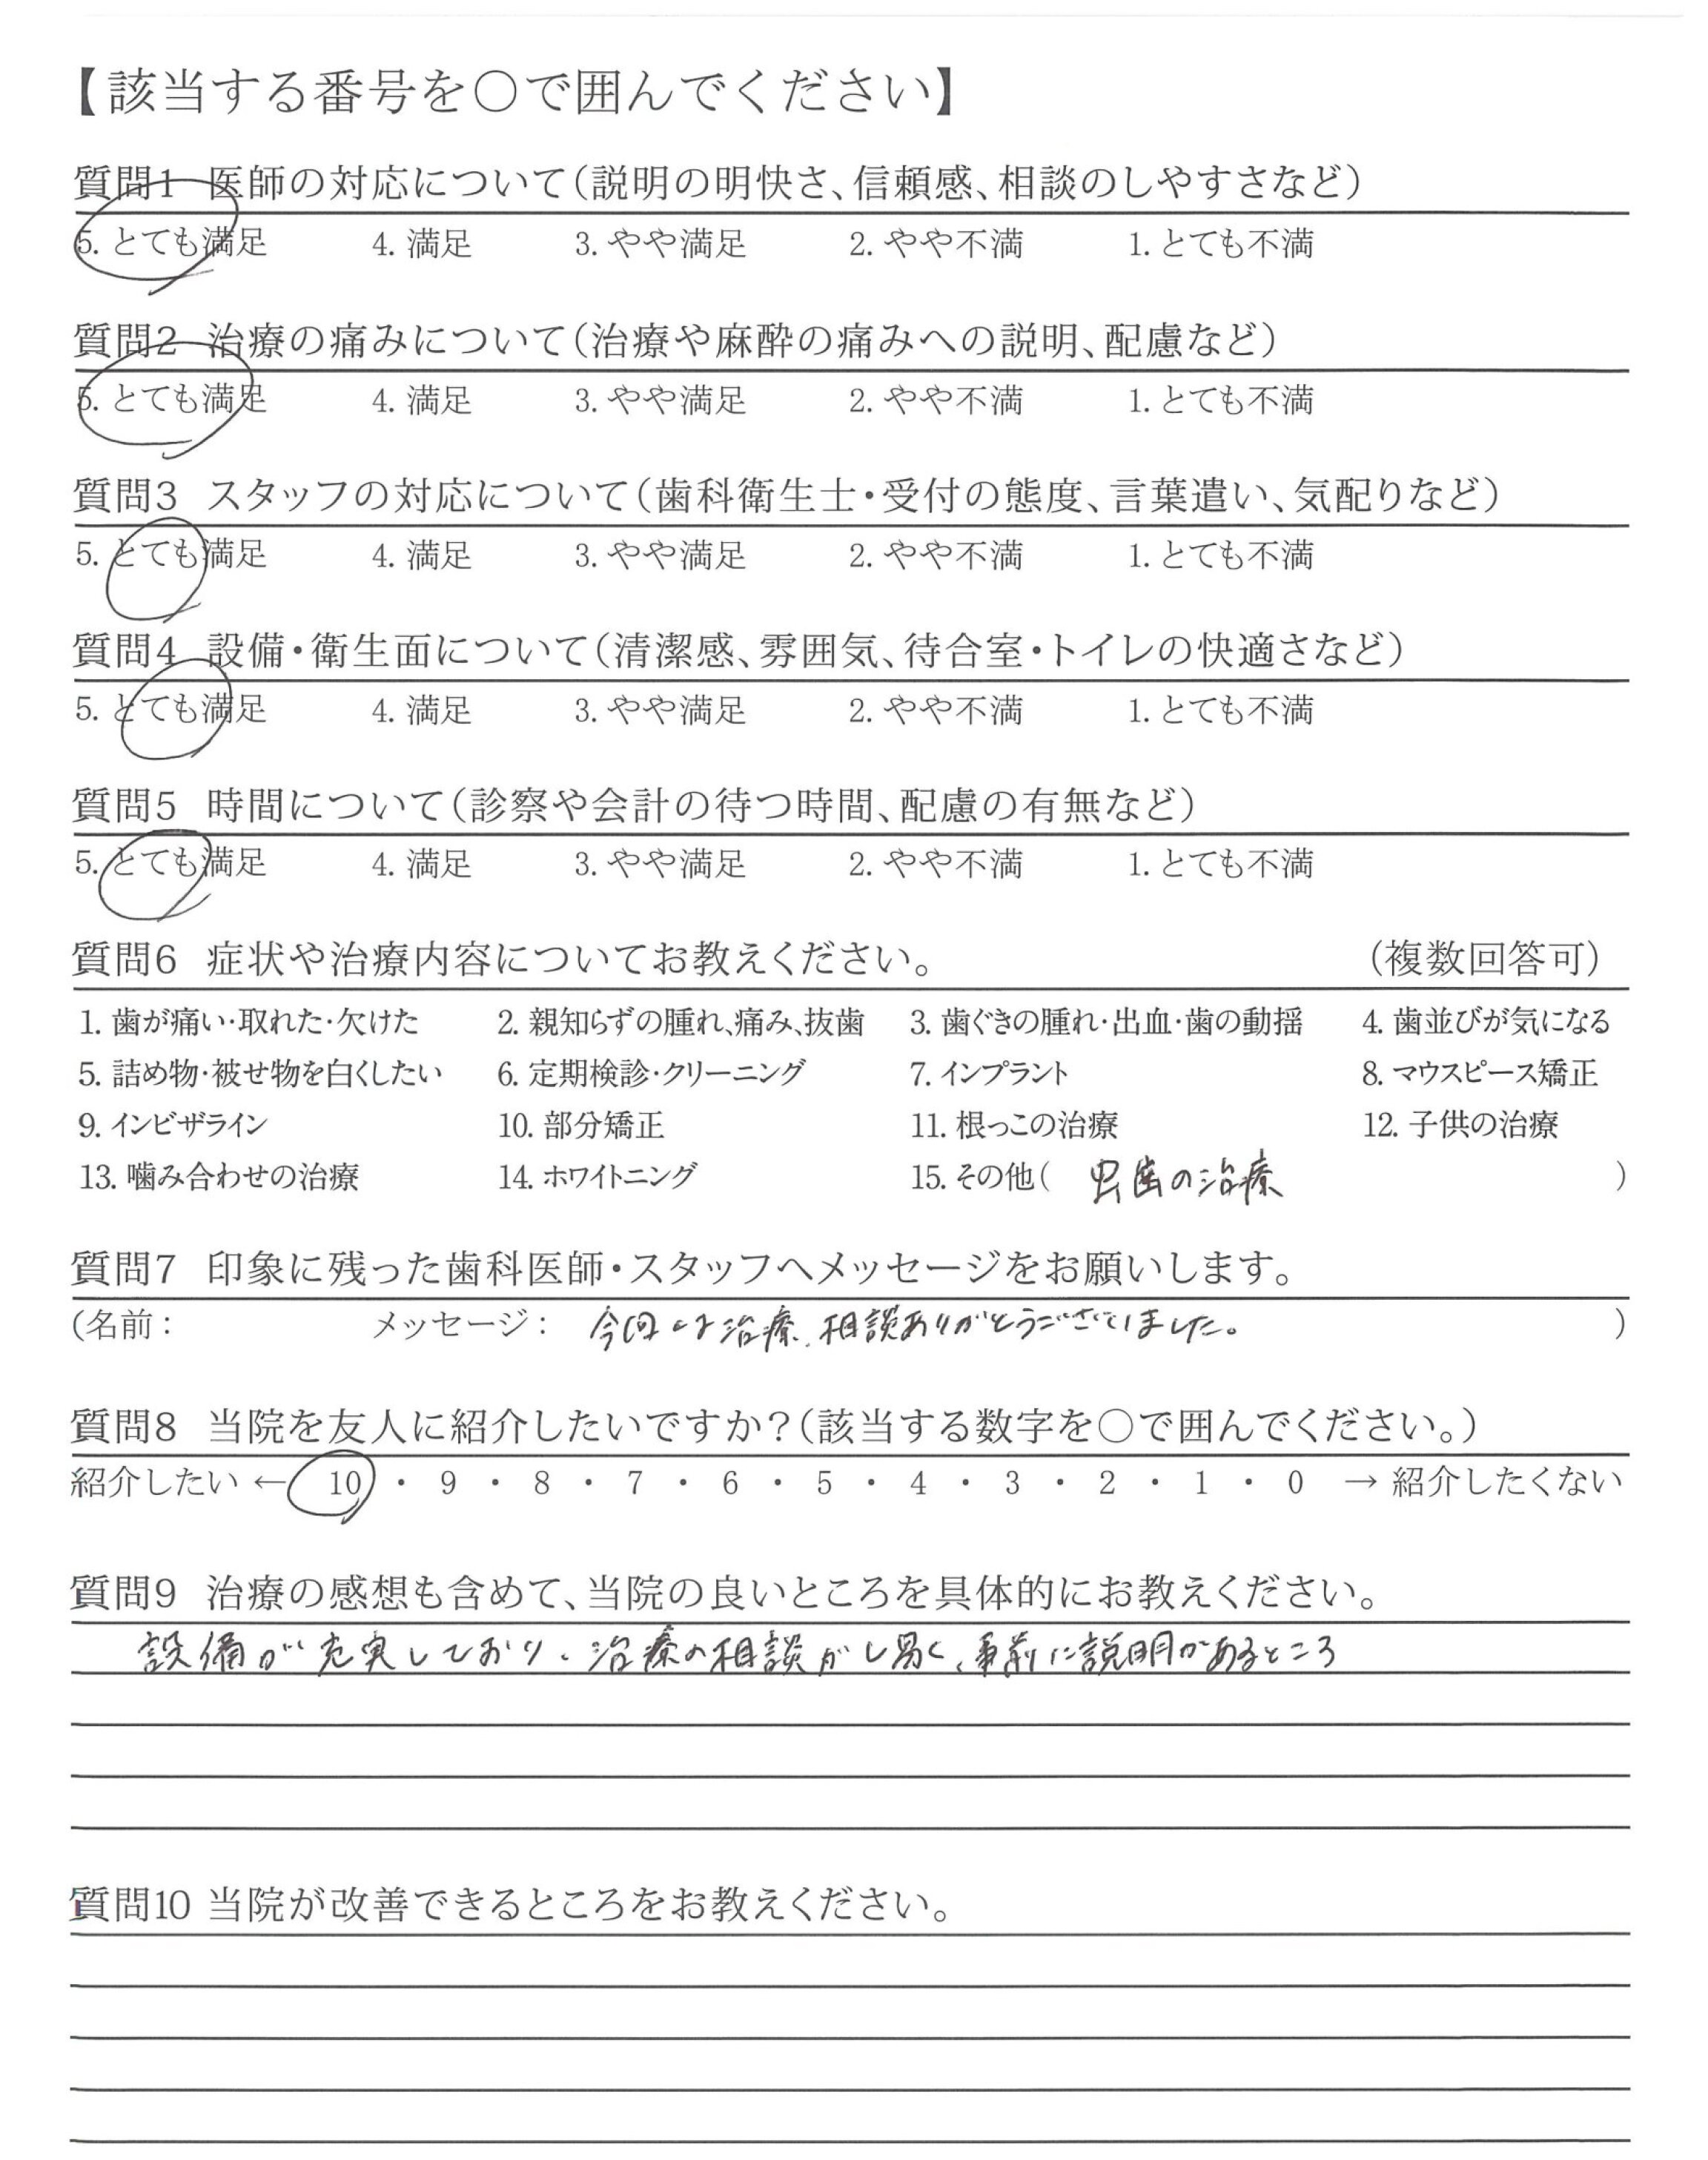 【該当する番号を○で囲んでください】
質問1 医師の対応について(説明の明快さ、信頼感、相談のしやすさなど)
5. とても満足 4. 満足 3. やや満足 2. やや不満 1. とても不満
質問2 治療の痛みについて(治療や麻酔の痛みへの説明、配慮など)
5. とても満足 4. 満足 3. やや満足 2. やや不満 1. とても不満
質問3 スタッフの対応について(歯科衛生士・受付の態度、言葉遣い、気配りなど)
5. とても満足 4. 満足 3. やや満足 2. やや不満 1. とても不満
質問4 設備・衛生面について(清潔感、雰囲気、待合室・トイレの快適さなど)
5. とても満足 4. 満足 3. やや満足 2. やや不満 1. とても不満
質問5 時間について(診察や会計の待つ時間、配慮の有無など)
5. とても満足 4. 満足 3. やや満足 2. やや不満 1. とても不満
質問6 症状や治療内容についてお教えください。 (複数回答可)
1. 歯が痛い・取れた・欠けた 2. 親知らずの腫れ、痛み、抜歯 3. 歯ぐきの腫れ・出血・歯の動揺 4. 歯並びが気になる
5. 詰め物・被せ物を白くしたい 6. 定期検診・クリーニング 7. インプラント 8. マウスピース矯正
9. インビザライン 10. 部分矯正 11. 根っこの治療 12. 子供の治療
13. 噛み合わせの治療 14. ホワイトニング 15. その他( 虫歯の治療 )
質問7 印象に残った歯科医師・スタッフへメッセージをお願いします。
(名前: メッセージ: 今回は治療、相談ありがとうございました。 )
質問8 当院を友人に紹介したいですか?(該当する数字を○で囲んでください。)
紹介したい ← 10 ・ 9 ・ 8 ・ 7 ・ 6 ・ 5 ・ 4 ・ 3 ・ 2 ・ 1 ・ 0 → 紹介したくない
質問9 治療の感想も含めて、当院の良いところを具体的にお教えください。
設備が充実しており、治療の相談がし易く、事前に説明があるところ
質問10 当院が改善できるところをお教えください。